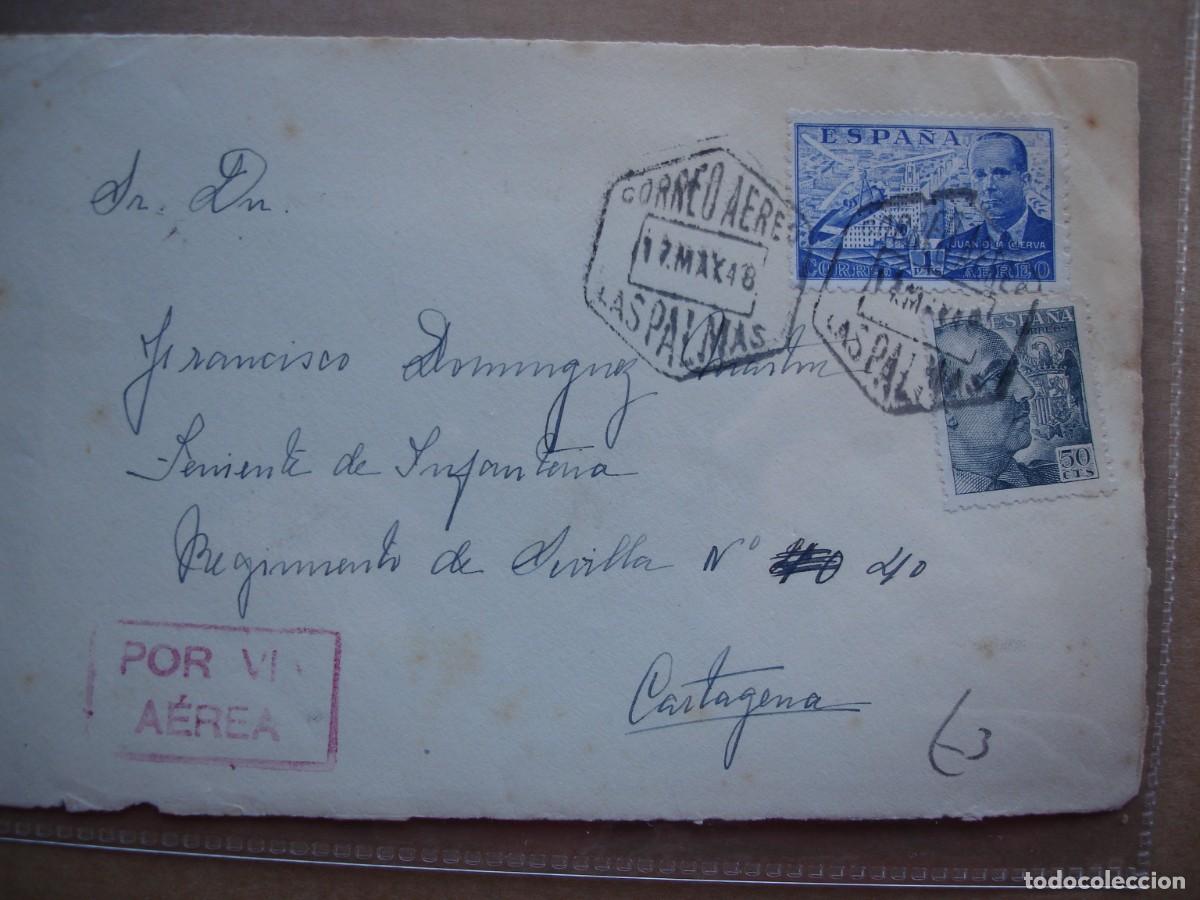 ESPAÑA
JUAN DE LA CIERVA
CORREO 1 PTS AEREO
CORREO AEREO
17. MAY 48
LAS PALMAS
LAS PALMAS
ESPAÑA
CORREOS
50
CTS
Sr. Dn.
Francisco Dominguez Martin
Teniente de Infanteria
Regimiento de Sevilla Nº 40
Cartagena
POR VIA
AÉREA
todocoleccion